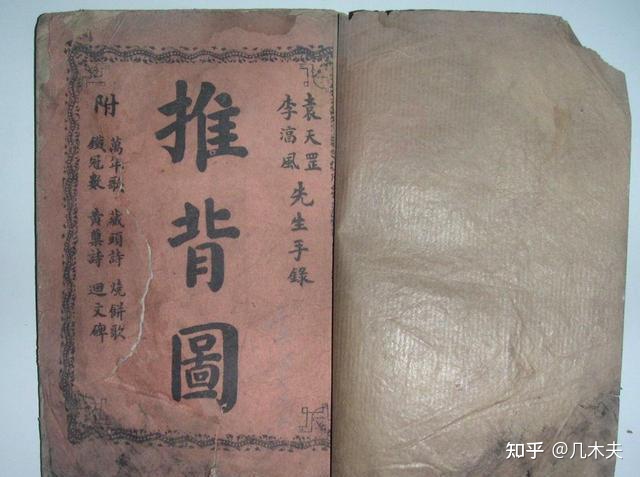 袁天罡
李淳風
先生手錄
推背圖
附
萬年歌 藏頭詩 燒餅歌
鐵冠數 黃巢詩 迴文碑
知乎 @几木夫